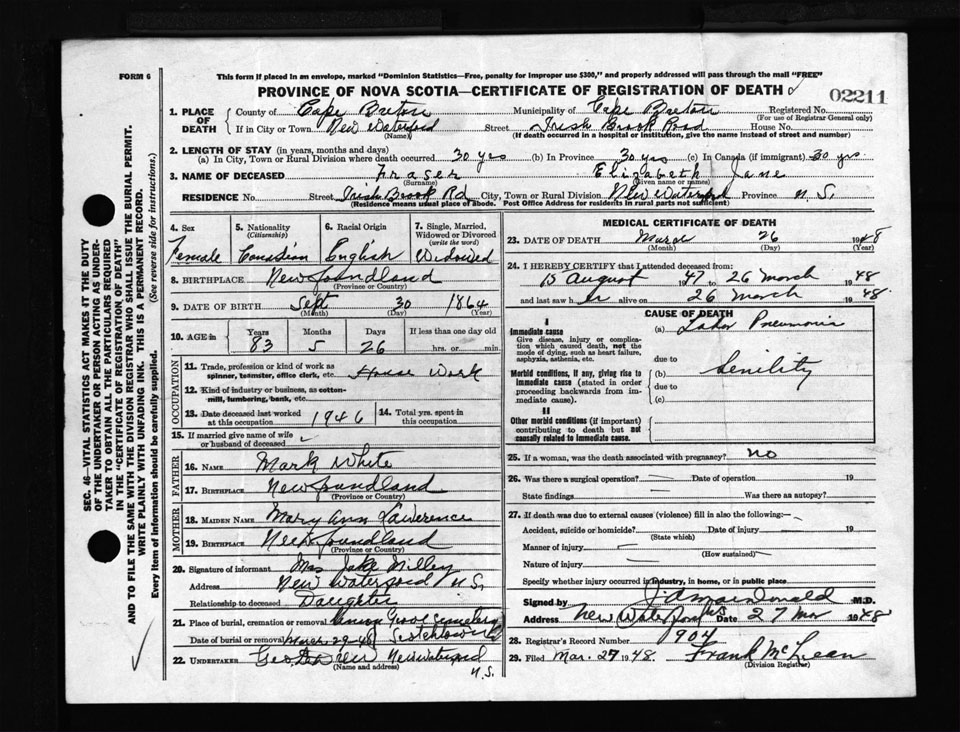 FORM 6
This form if placed in an envelope, marked "Dominion Statistics—Free, penalty for improper use $300," and properly addressed will pass through the mail "FREE"
PROVINCE OF NOVA SCOTIA—CERTIFICATE OF REGISTRATION OF DEATH
02211
1. PLACE OF DEATH { County of Cape Breton Municipality of Cape Breton Registered No.
(For use of Registrar General only)
If in City or Town New Waterford Street Irish Brook Road House No.
(Name) (If death occurred in a hospital or institution, give the name instead of street and number)
2. LENGTH OF STAY (in years, months and days)
(a) In City, Town or Rural Division where death occurred 30 yrs (b) In Province 30 yrs (c) In Canada (if immigrant) 30 yrs.
3. NAME OF DECEASED Fraser Elizabeth Jane
(Surname) (Given name or names)
RESIDENCE No. Street Irish Brook Rd City, Town or Rural Division New Waterford Province N.S.
(Residence means usual place of abode. Post Office Address for residents in rural parts not sufficient)
4. Sex 5. Nationality (Citizenship) 6. Racial Origin 7. Single, Married, Widowed or Divorced (write the word)
Female Canadian English Widowed
8. BIRTHPLACE Newfoundland
(Province or Country)
9. DATE OF BIRTH Sept 30 1864
(Month) (Day) (Year)
10. AGE in { Years Months Days If less than one day old
83 5 26 hrs. or min.
OCCUPATION
11. Trade, profession or kind of work as spinner, teamster, office clerk, etc. House Work
12. Kind of industry or business, as cotton-mill, lumbering, bank, etc.
13. Date deceased last worked at this occupation 1946 14. Total yrs. spent in this occupation
15. If married give name of wife or husband of deceased
FATHER
16. NAME Mark White
17. BIRTHPLACE Newfoundland
(Province or Country)
MOTHER
18. MAIDEN NAME Mary Ann Lawerence
19. BIRTHPLACE Newfoundland
(Province or Country)
20. Signature of informant Mrs Jake Milley
Address New Waterford N.S.
Relationship to deceased Daughter
21. Place of burial, cremation or removal Grove Cemetery
Date of burial or removal March 29-48
22. UNDERTAKER New Waterford
(Name and address) N.S.
MEDICAL CERTIFICATE OF DEATH
23. DATE OF DEATH March 26 1948
(Month) (Day) (Year)
24. I HEREBY CERTIFY that I attended deceased from:
15 August 1947 to 26 March 1948
and last saw her alive on 26 March 1948
CAUSE OF DEATH
I
Immediate cause (a) Lobar Pneumonia
Give disease, injury or complication which caused death, not the mode of dying, such as heart failure, asphyxia, asthenia, etc.
due to
Morbid conditions, if any, giving rise to immediate cause (stated in order proceeding backwards from immediate cause).
(b) Senility
due to
(c)
II
Other morbid conditions (if important) contributing to death but not causally related to immediate cause.
25. If a woman, was the death associated with pregnancy? no
26. Was there a surgical operation? — Date of operation 19
State findings — Was there an autopsy?
27. If death was due to external causes (violence) fill in also the following:—
Accident, suicide or homicide? Date of injury 19
(State which)
Manner of injury
(How sustained)
Nature of injury
Specify whether injury occurred in industry, in home, or in public place
Signed by J A MacDonald M.D.
Address New Waterford NS Date 27 Mar 1948
28. Registrar's Record Number 1904
29. Filed Mar. 27 1948. Frank McLean
(Division Registrar)
SEC. 46—VITAL STATISTICS ACT MAKES IT THE DUTY
OF THE UNDERTAKER OR PERSON ACTING AS UNDERTAKER TO OBTAIN ALL THE PARTICULARS REQUIRED
IN THE "CERTIFICATE OF REGISTRATION OF DEATH"
AND TO FILE THE SAME WITH THE DIVISION REGISTRAR WHO SHALL ISSUE THE BURIAL PERMIT.
WRITE PLAINLY WITH UNFADING INK. THIS IS A PERMANENT RECORD.
Every item of information should be carefully supplied. (See reverse side for instructions.)